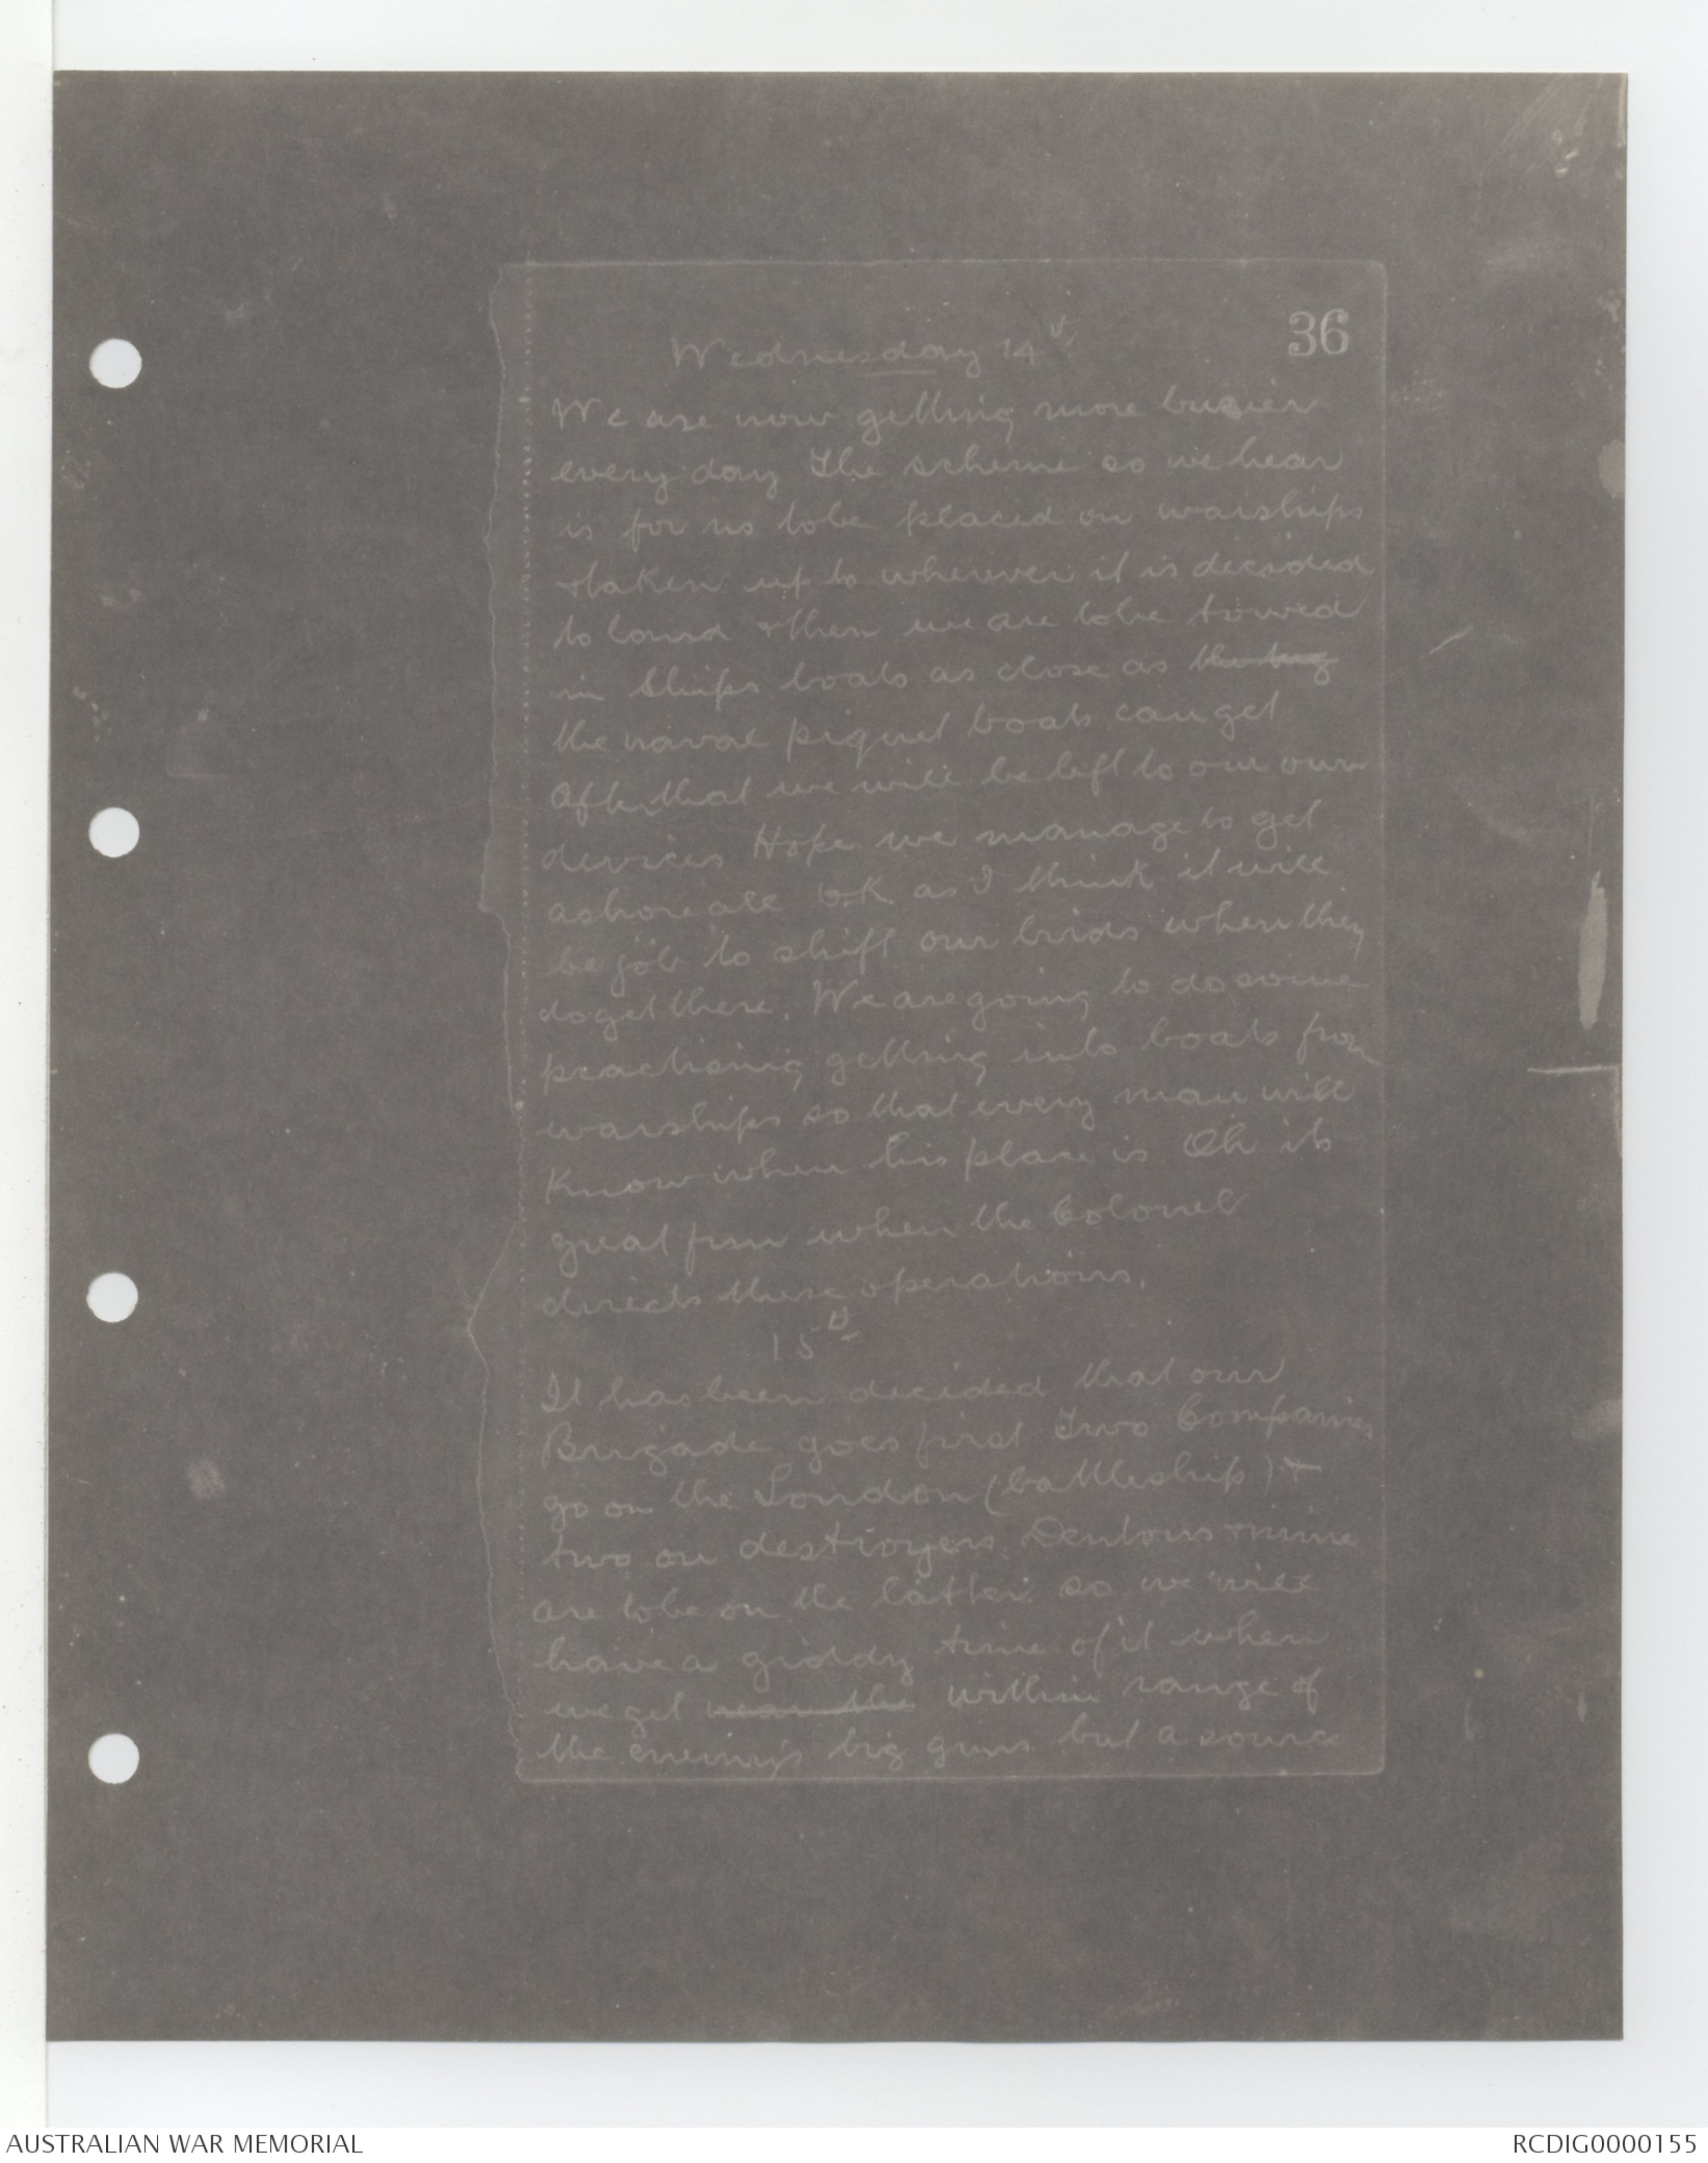 36
Wednesday 14th
We are now getting more busier
every day The scheme so we hear
is for us to be placed on warships
& taken up to wherever it is decided
to land & then we are to be towed
in Ships boats as close as
the naval piquet boats can get
After that we will be left to our own
devices Hope we manage to get
ashore all O.K. as I think it will
be job to shift our birds when they
do get there. We are going to do some
practising getting into boats from
warships so that every man will
know where his place is Oh its
great fun when the Colonel
directs these operations.
15th
It has been decided that our
Brigade goes first Two Companies
go on the London (battleship) &
two on destroyers Dentons & mine
are to be on the latter so we will
have a giddy time of it when
we get near the within range of
the enemy's big guns but a source
AUSTRALIAN WAR MEMORIAL
RCDIG0000155